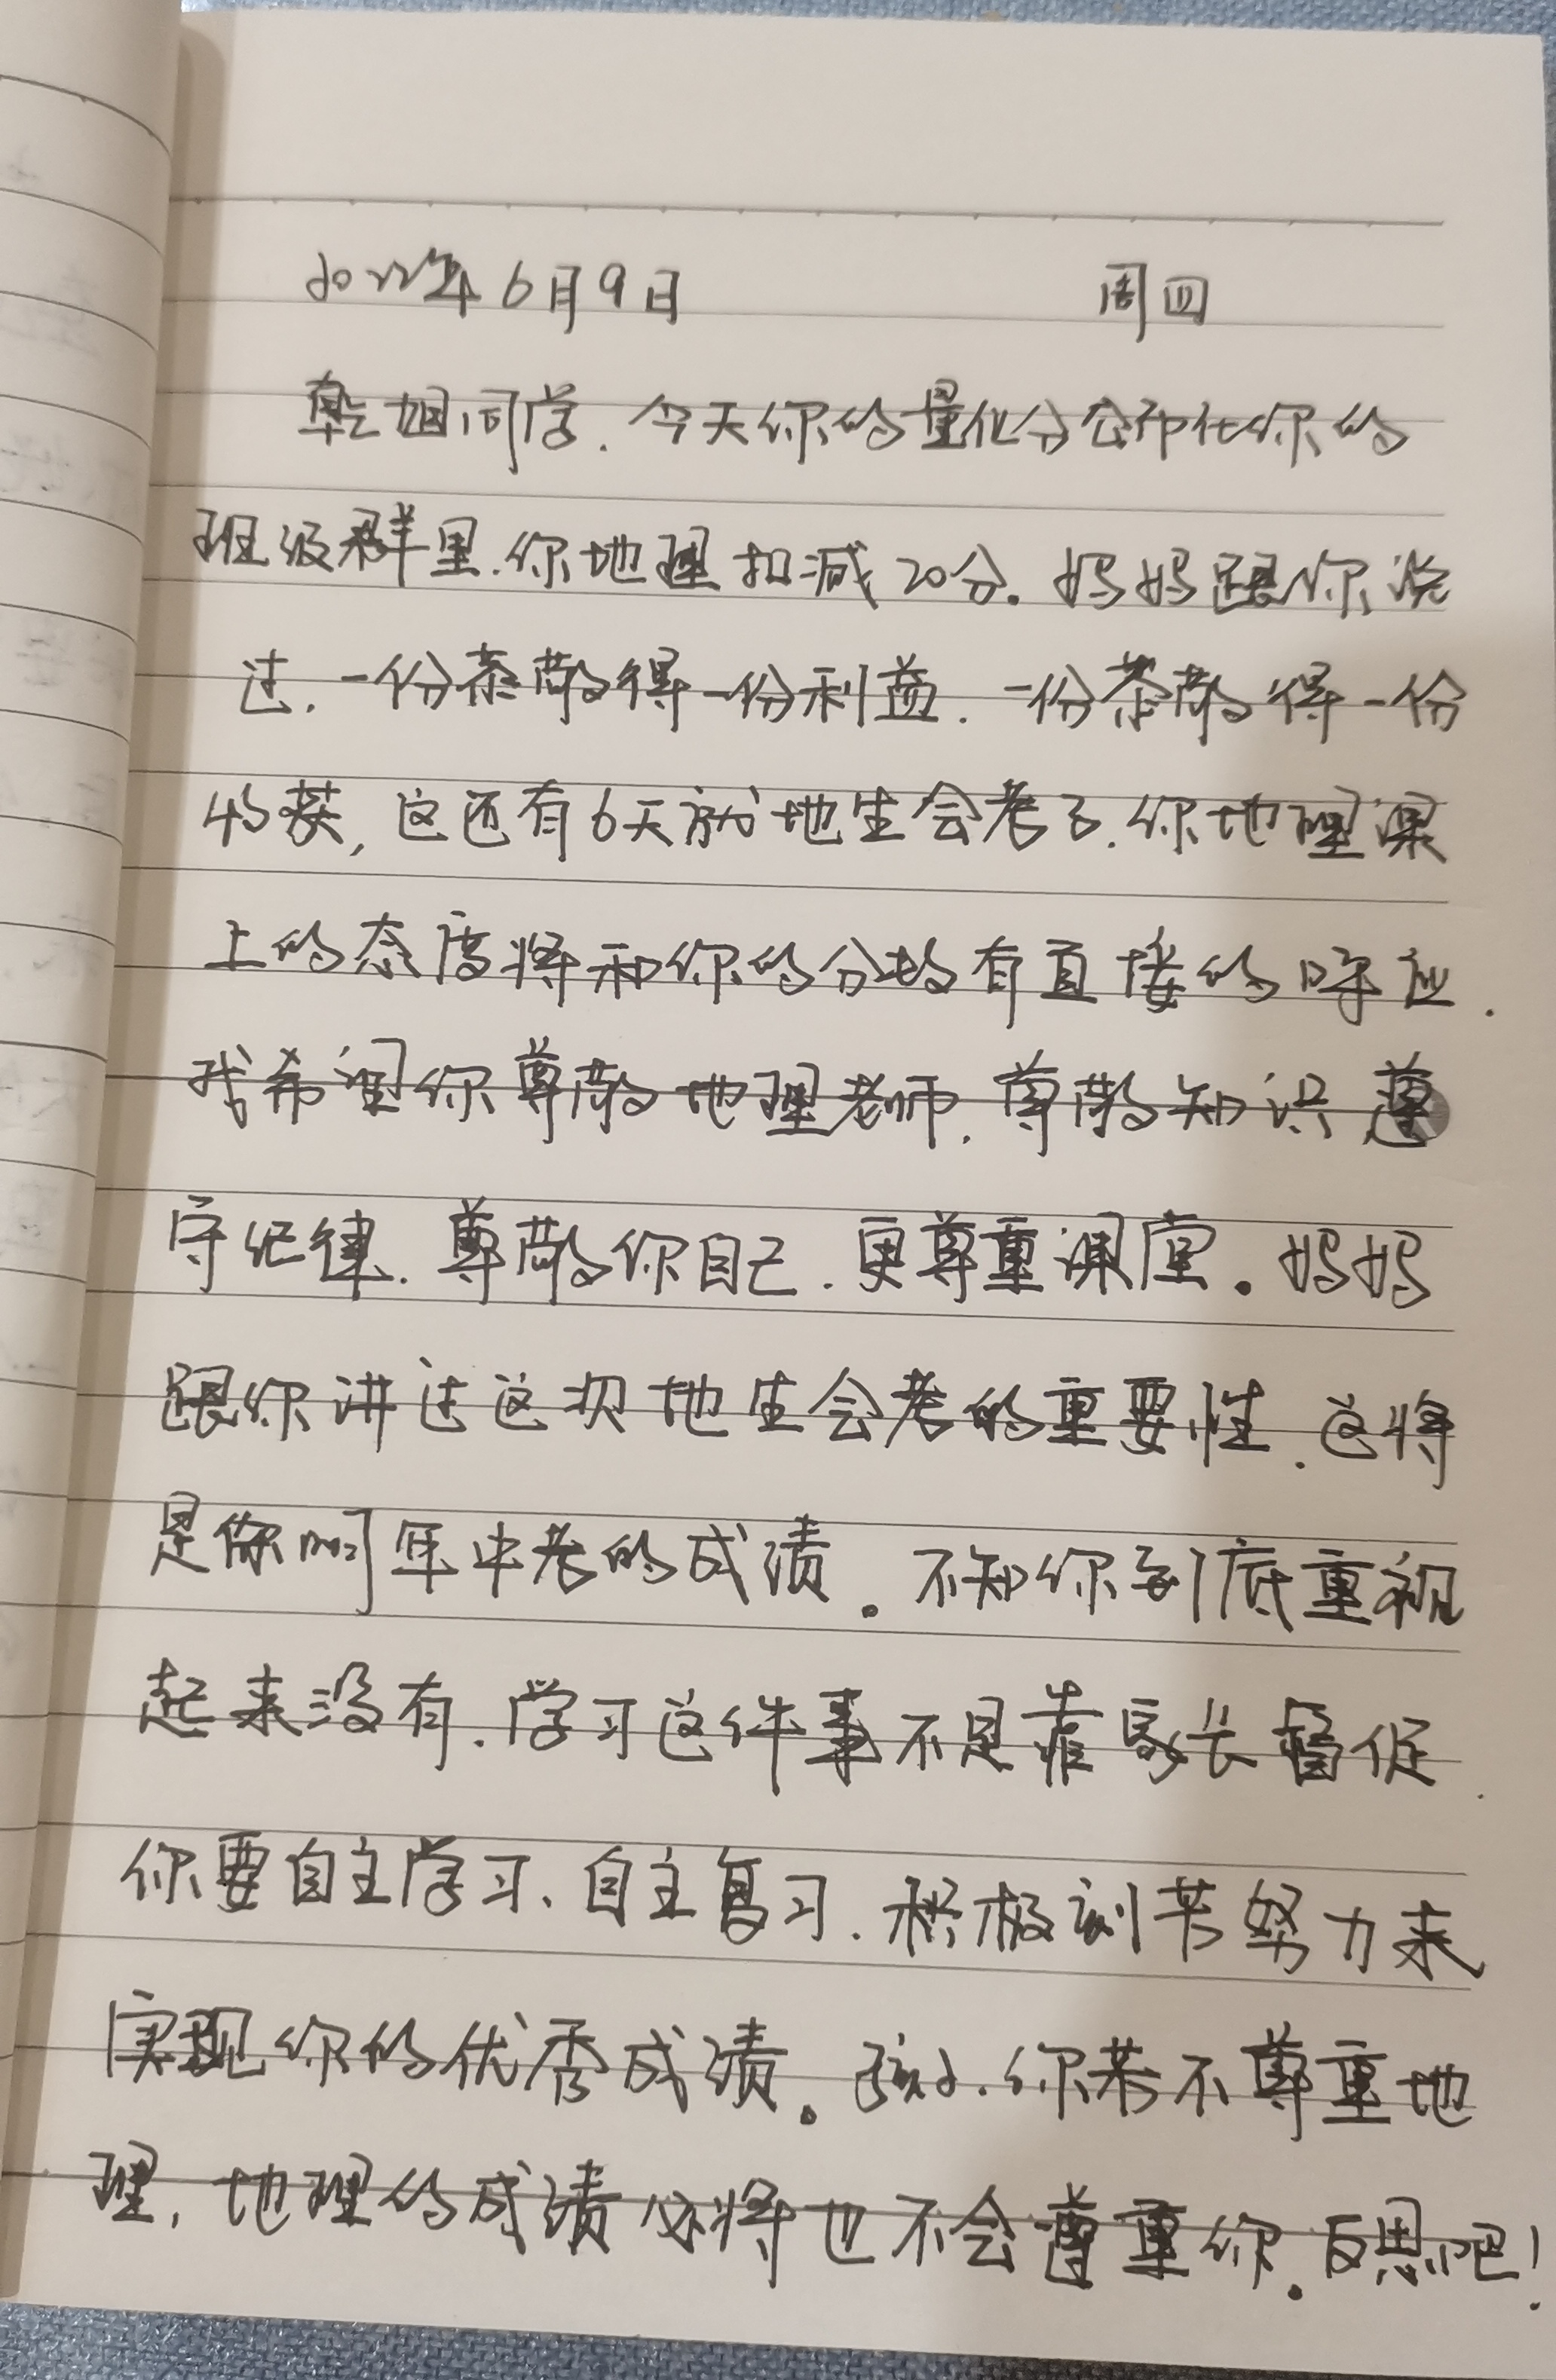 2022年6月9日 周四
乾姻同学.今天你的量化分公布在你的
班级群里.你地理扣减20分。妈妈跟你说
过.一份恭敬得一份利益.一份恭敬得一份
收获,这还有6天就地生会考了.你地理课
上的态度将和你的分数有直接的呼应.
我希望你尊敬地理老师.尊敬知识遵
守纪律.尊敬你自己.更尊重课堂。妈妈
跟你讲过这次地生会考的重要性.这将
是你明年中考的成绩。不知你到底重视
起来没有.学习这件事不是靠家长督促.
你要自主学习、自主复习.积极刻苦努力来
实现你的优秀成绩。孩子.你若不尊重地
理,地理的成绩必将也不会尊重你。反思吧!